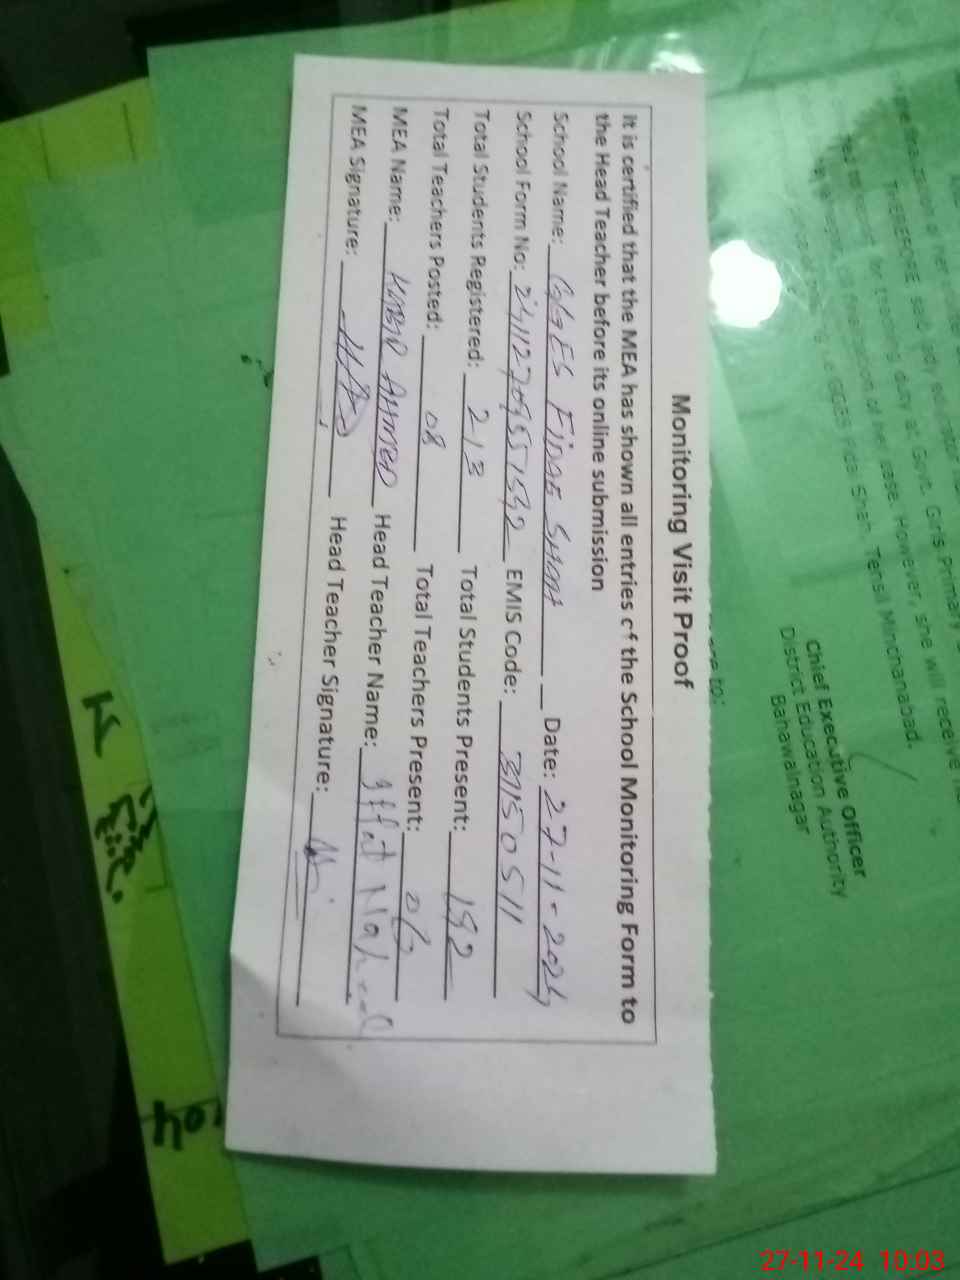 Monitoring Visit Proof
It is certified that the MEA has shown all entries of the School Monitoring Form to
the Head Teacher before its online submission
School Name: GGES Fida Shah Date: 27-11-2024
School Form No: EMIS Code: 31150511
Total Students Registered: 213 Total Students Present: 192
Total Teachers Posted: 08 Total Teachers Present: 06
MEA Name: KABIR AHMED Head Teacher Name: Iffat Naheed
MEA Signature: Head Teacher Signature:
THEREFORE said lady
for training duty at Govt. Girls Primary
of her case. However, she will receive
GGES Fida Shah Tehsil Minchanabad.
Chief Executive Officer
District Education Authority
Bahawalnagar
27-11-24 10:03